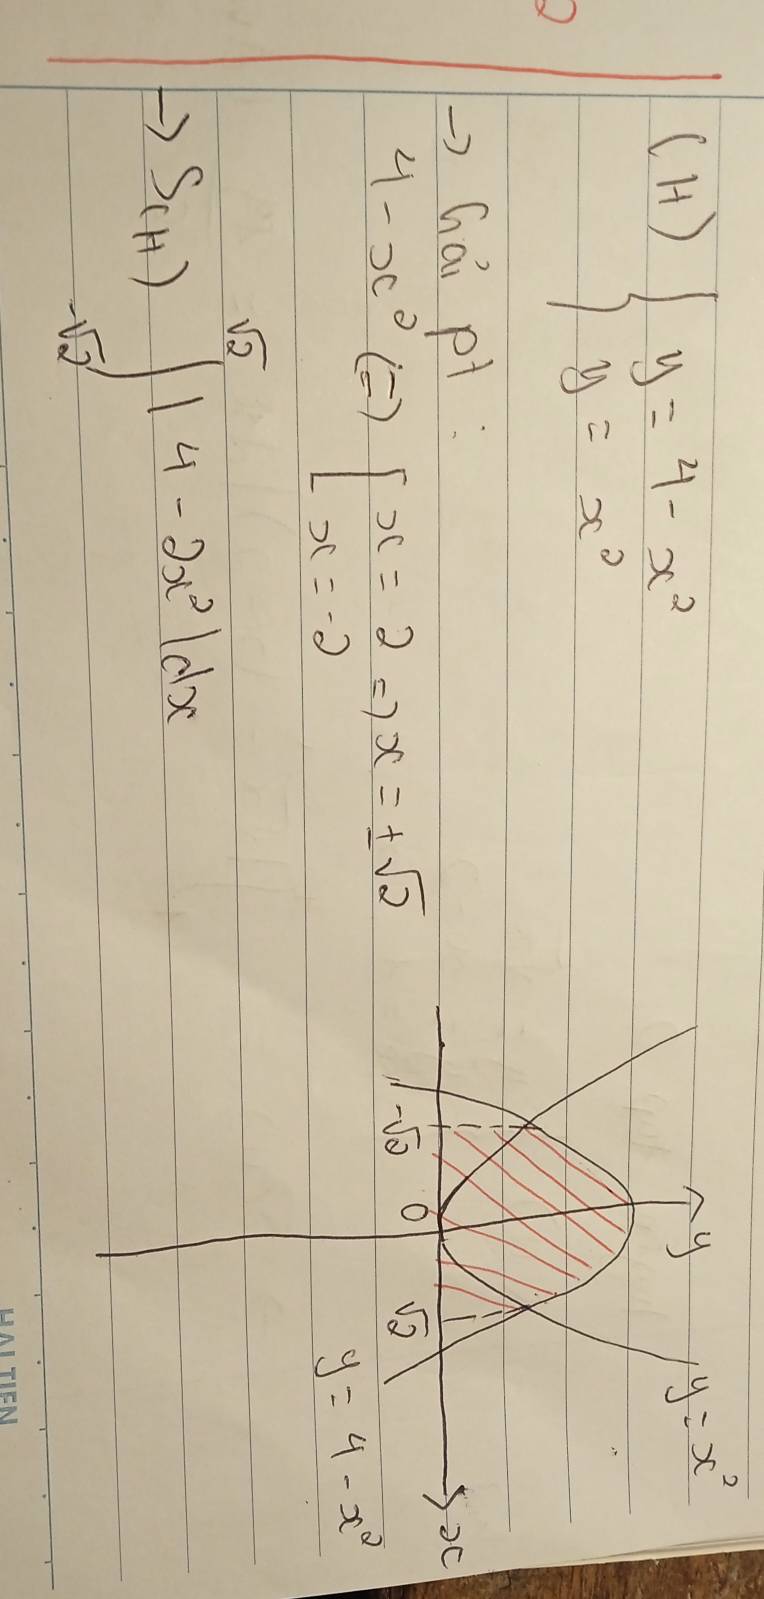 (H) { y = 4 - x²
{ y = x²
→ Giải pt :
4 - x² (=) [ x = 2 => x = ±√2
[ x = -2
√2
→ S(H) ∫ | 4 - 2x² | dx
-√2
y
y = x²
-√2
0
√2
x
y = 4 - x²
HẢI TIẾN